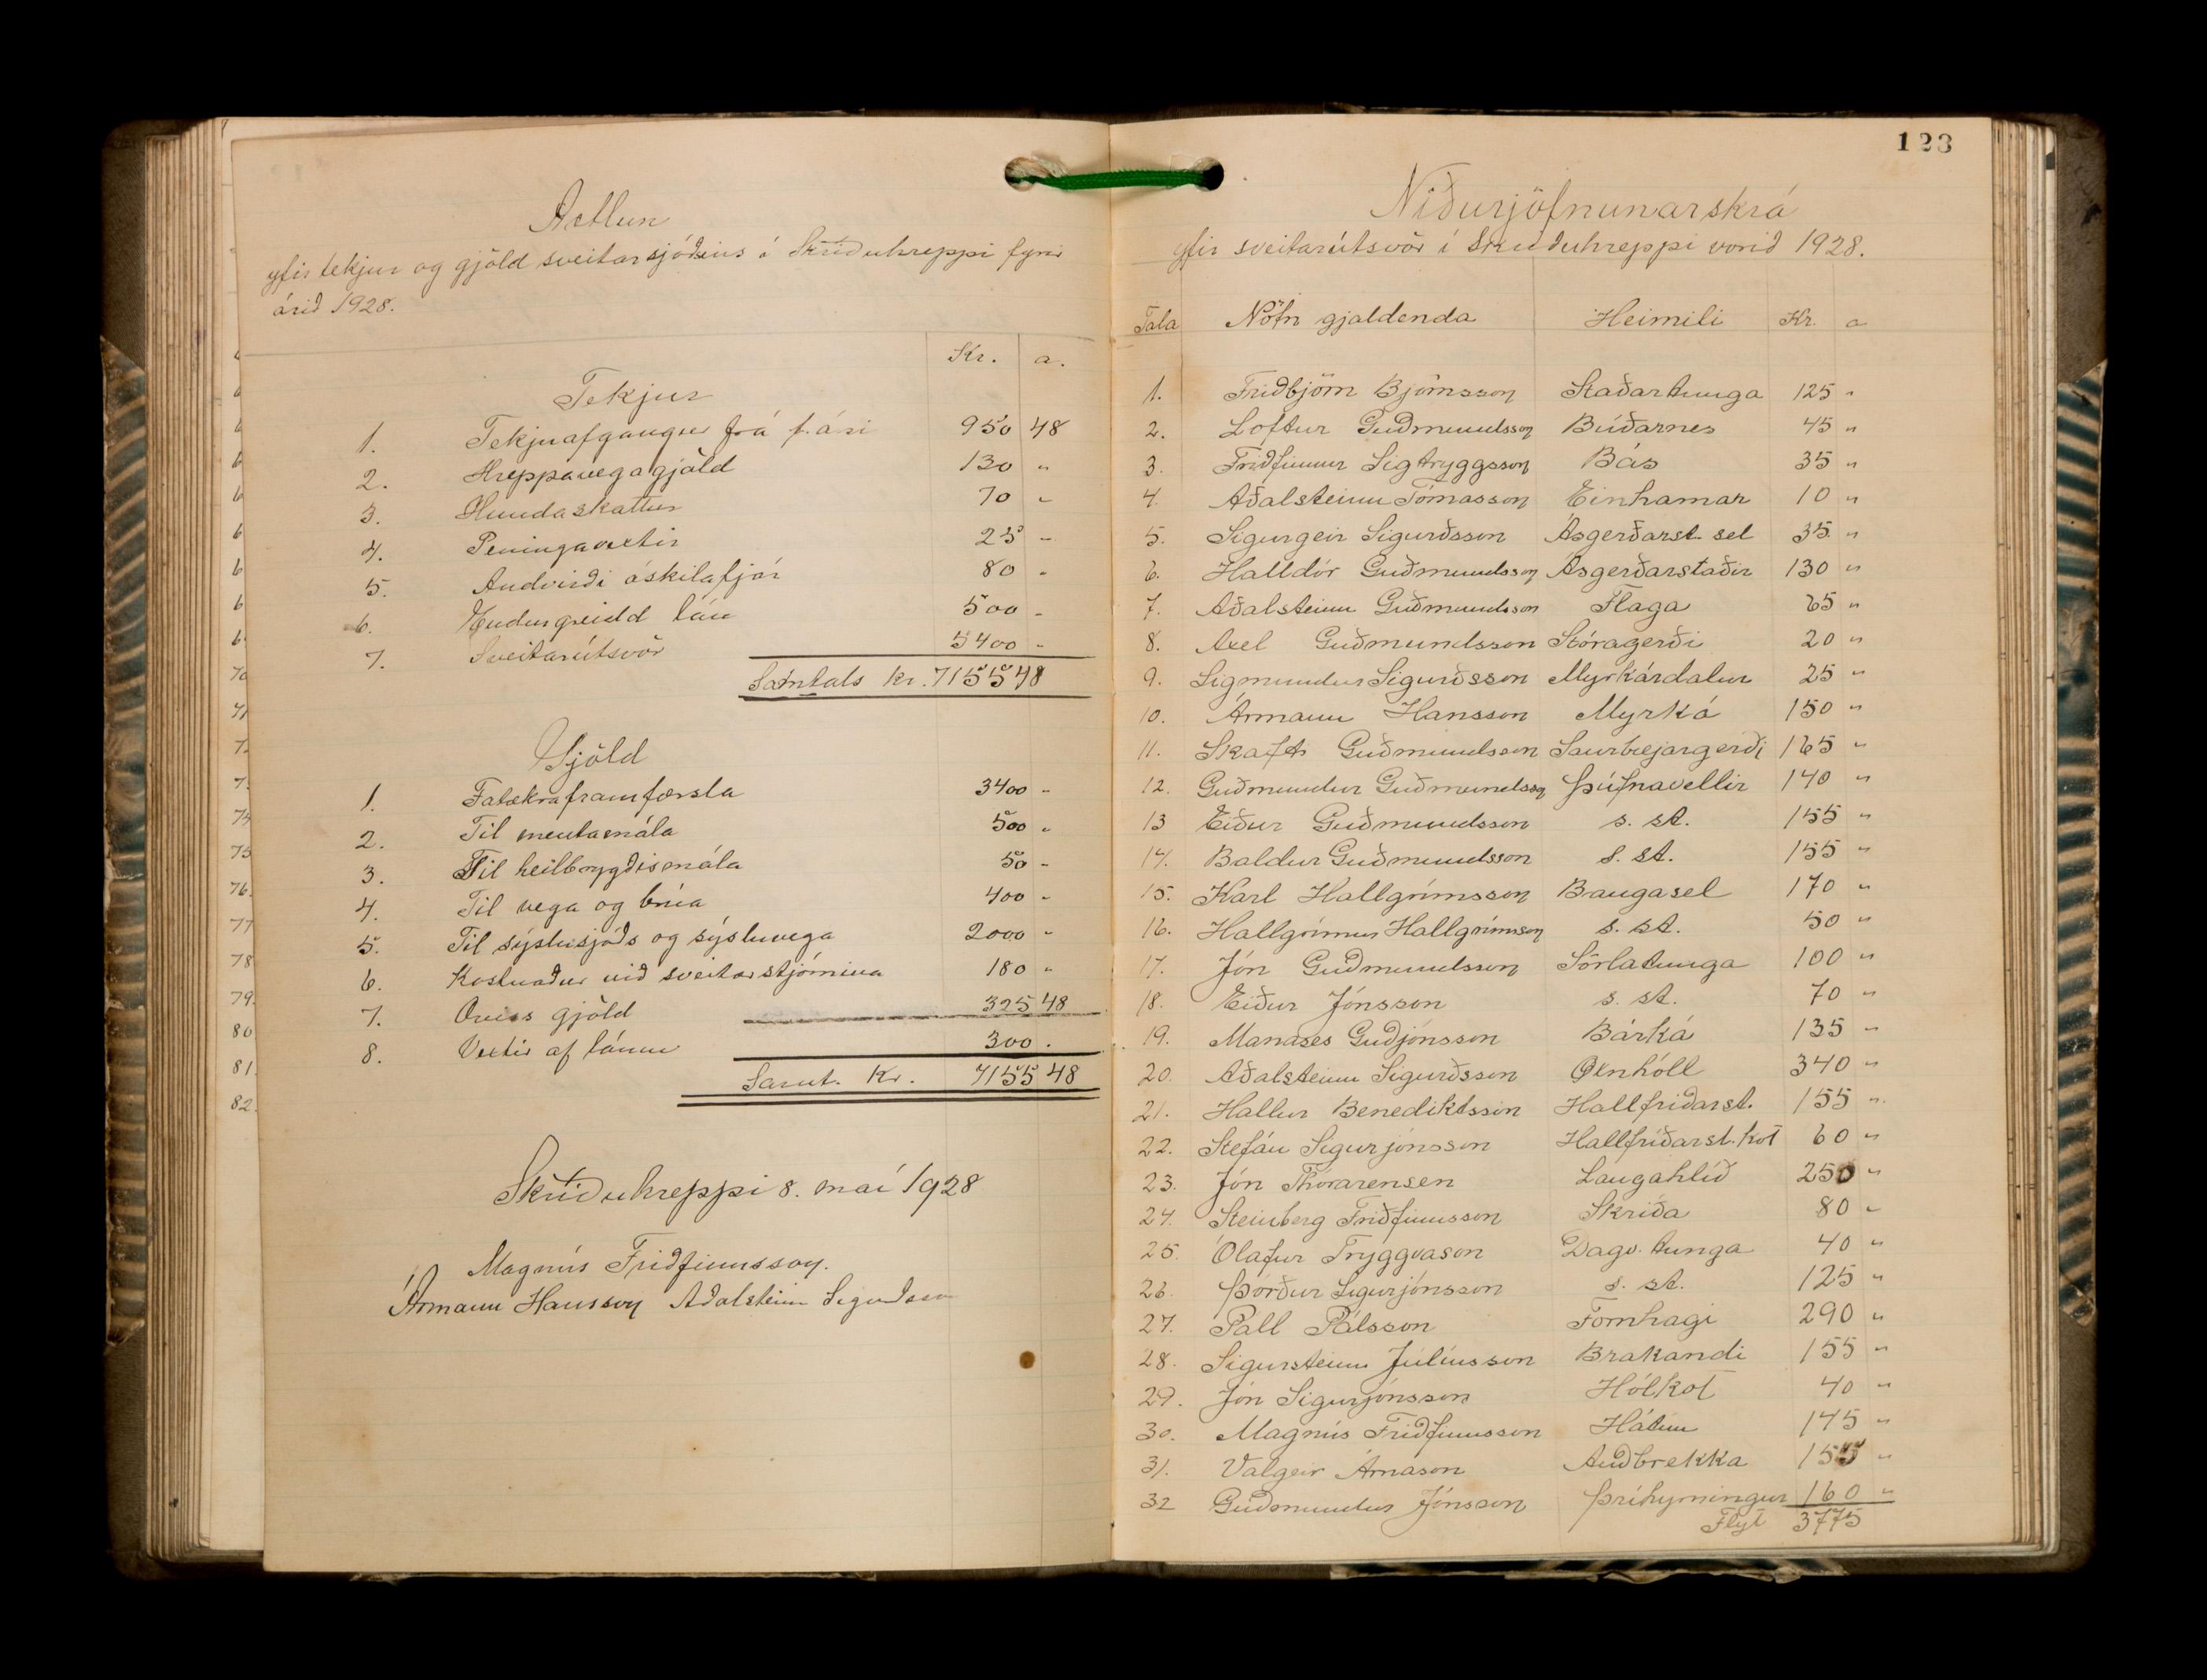 Áætlun
yfir tekjur og gjöld sveitarsjóðsins í Skriðuhreppi fyrir
árið 1928.
Kr. a.
Tekjur
1. Tekjuafgangur frá f. ári 950 48
2. Hreppavegagjöld 130 "
3. Hundaskattur 70 "
4. Peningavextir 25 "
5. Andvirði óskilafjár 80 "
6. Endurgreidd lán 500 "
7. Sveitarútsvör 5400 "
Samtals kr. 7155 48
Gjöld
1. Fátækraframfærsla 3400 "
2. Til mentamála 500 "
3. Til heilbrygðismála 50 "
4. Til vega og brúa 400 "
5. Til sýslusjóðs og sýsluvega 2000 "
6. Kostnaður við sveitarstjórnina 180 "
7. Óviss gjöld 325 48
8. Vextir af lánum 300 .
Samt. Kr. 7155 48
Skriðuhreppi 8. maí 1928
Magnús Friðfinnsson.
Ármann Hansson Aðalsteinn Sigurðsson
70
71
7.
7.
74
75
76.
77
78
79.
80
81.
82.
123
Niðurjöfnunarskrá
yfir sveitarútsvör í Skriðuhreppi vorið 1928.
Tala Nöfn gjaldenda Heimili Kr. a
1. Friðbjörn Björnsson Staðartunga 125 "
2. Loftur Guðmundsson Búðarnes 45 "
3. Friðfinnur Sigtryggsson Bás 35 "
4. Aðalsteinn Tómasson Einhamar 10 "
5. Sigurgeir Sigurðsson Ásgerðarst. sel 35 "
6. Halldór Guðmundsson Ásgerðarstaðir 130 "
7. Aðalsteinn Guðmundsson Flaga 65 "
8. Axel Guðmundsson Stóragerði 20 "
9. Sigmundur Sigurðsson Myrkárdalur 25 "
10. Ármann Hansson Myrká 150 "
11. Skafti Guðmundsson Saurbæjargerði 165 "
12. Guðmundur Guðmundsson Þúfnavellir 140 "
13 Eiður Guðmundsson s. st. 155 "
14. Baldur Guðmundsson s. st. 155 "
15. Karl Hallgrímsson Baugasel 170 "
16. Hallgrímur Hallgrímsson s. st. 50 "
17. Jón Guðmundsson Sörlatunga 100 "
18. Eiður Jónsson s. st. 70 "
19. Manases Guðjónsson Bárká 135 "
20. Aðalsteinn Sigurðsson Öxnhóll 340 "
21. Hallur Benediktsson Hallfríðarst. 155 "
22. Stefán Sigurjónsson Hallfríðarst. kot 60 "
23. Jón Thórarensen Laugahlíð 250 "
24. Steinberg Friðfinnsson Skriða 80 "
25. Ólafur Tryggvason Dagv. tunga 40 "
26. Þórður Sigurjónsson s. st. 125 "
27. Páll Pálsson Fornhagi 290 "
28. Sigursteinn Júlíusson Brakandi 155 "
29. Jón Sigurjónsson Hólkot 40 "
30. Magnús Friðfinnsson Hátún 145 "
31. Valgeir Árnason Auðbrekka 155 "
32 Guðmundur Jónsson Þríhyrningur 160 "
Flyt 3775